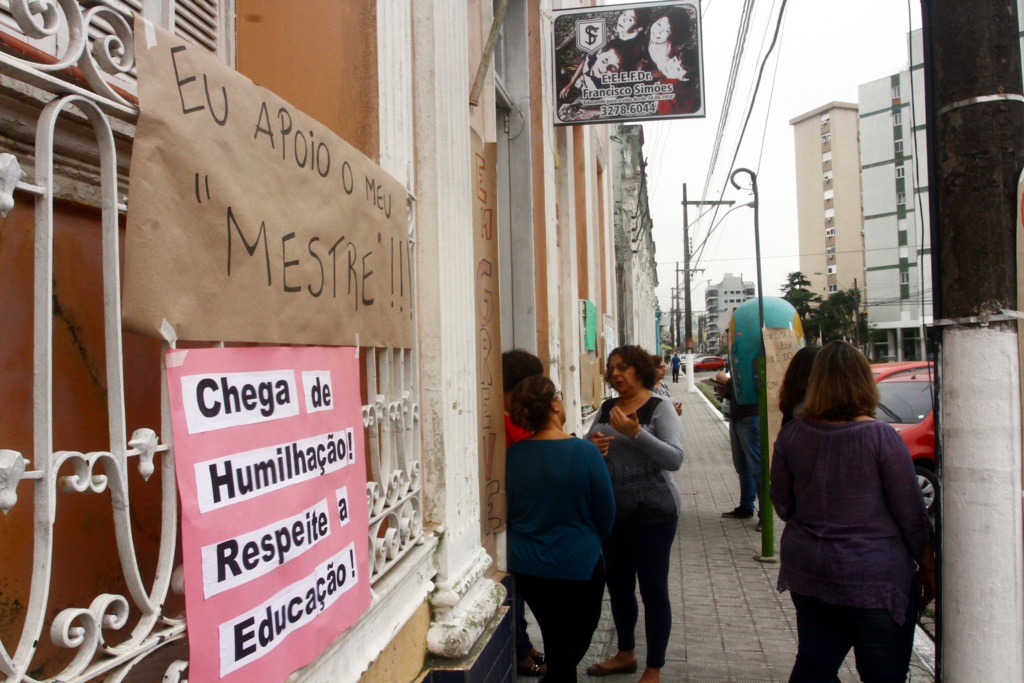 EU APOIO O MEU
"MESTRE"!!!
Chega de
Humilhação!
Respeite a
Educação!
E.E.E.F.Dr.
Francisco Simões
3278.6044
EM GREVE